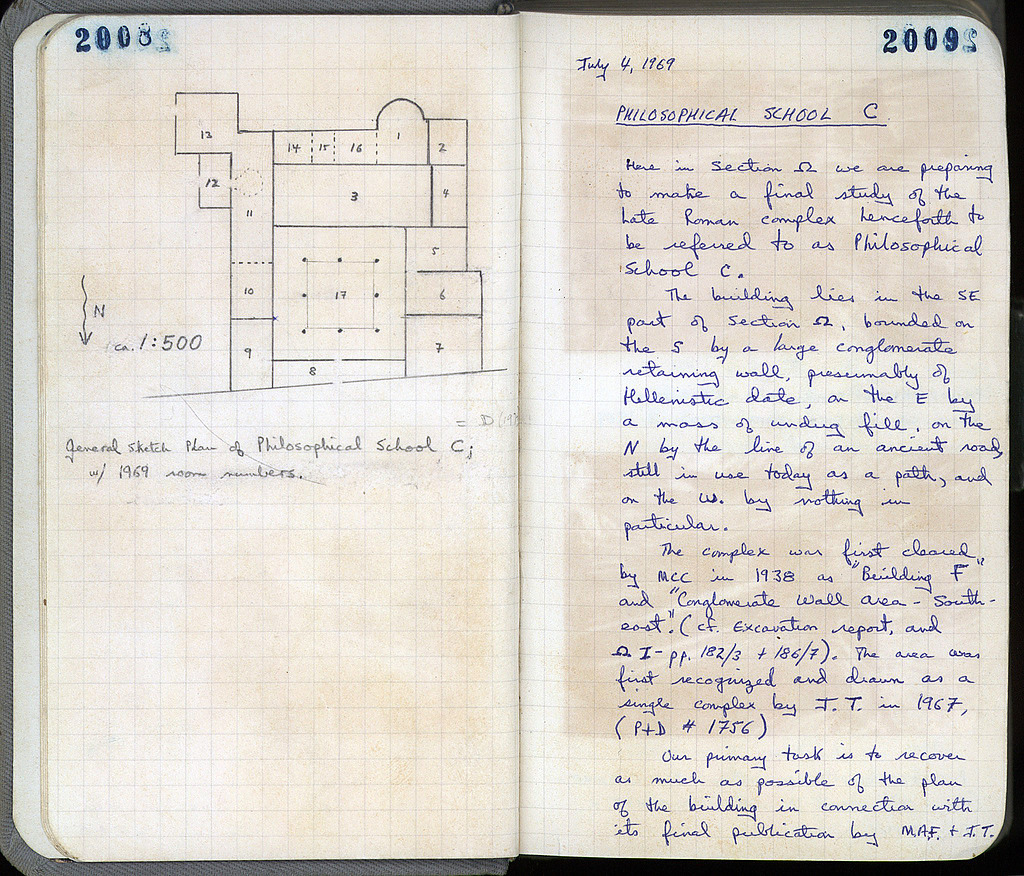 2008
13
14 15 16 1 2
12
3 4
11
5
17
10 6
N
ca. 1:500
9 7
8
= D
General Sketch Plan of Philosophical School C;
w/ 1969 room numbers.
2009
July 4, 1969
PHILOSOPHICAL SCHOOL C.
Here in Section Ω we are preparing
to make a final study of the
Late Roman complex henceforth to
be referred to as Philosophical
School C.
The building lies in the SE
part of Section Ω, bounded on
the S by a large conglomerate
retaining wall, presumably of
Hellenistic date, on the E by
a mass of undug fill, on the
N by the line of an ancient road,
still in use today as a path, and
on the W. by nothing in
particular.
The complex was first cleared
by MCC in 1938 as "Building F"
and "Conglomerate Wall Area - South-
east". (cf. Excavation report, and
Ω I - pp. 182/3 + 186/7). The area was
first recognized and drawn as a
single complex by J.T. in 1967,
(P+D # 1756)
Our primary task is to recover
as much as possible of the plan
of the building in connection with
its final publication by M.A.F. + J.T.